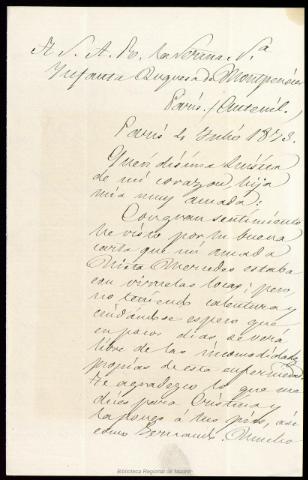 A S. A. R. la Serma. Sra.
Infanta Duquesa de Montpensier
Paris / Auteuil.
Paris 2 Julio 1873.
Queridisima Luisa
de mi corazon, hija
mia muy amada:
Con gran sentimiento
he visto por tu buena
carta que mi amada
Nieta Mercedes estaba
con viruelas locas; pero,
no teniendo calentura y
cuidandose espero que
en pocos dias, se verá
libre de las incomodidades
propias de esta enfermedad
Te agradezco lo que me
dices para Cristina y
la pongo á tus piés, así
como Fernando. Mucho
Biblioteca Regional de Madrid